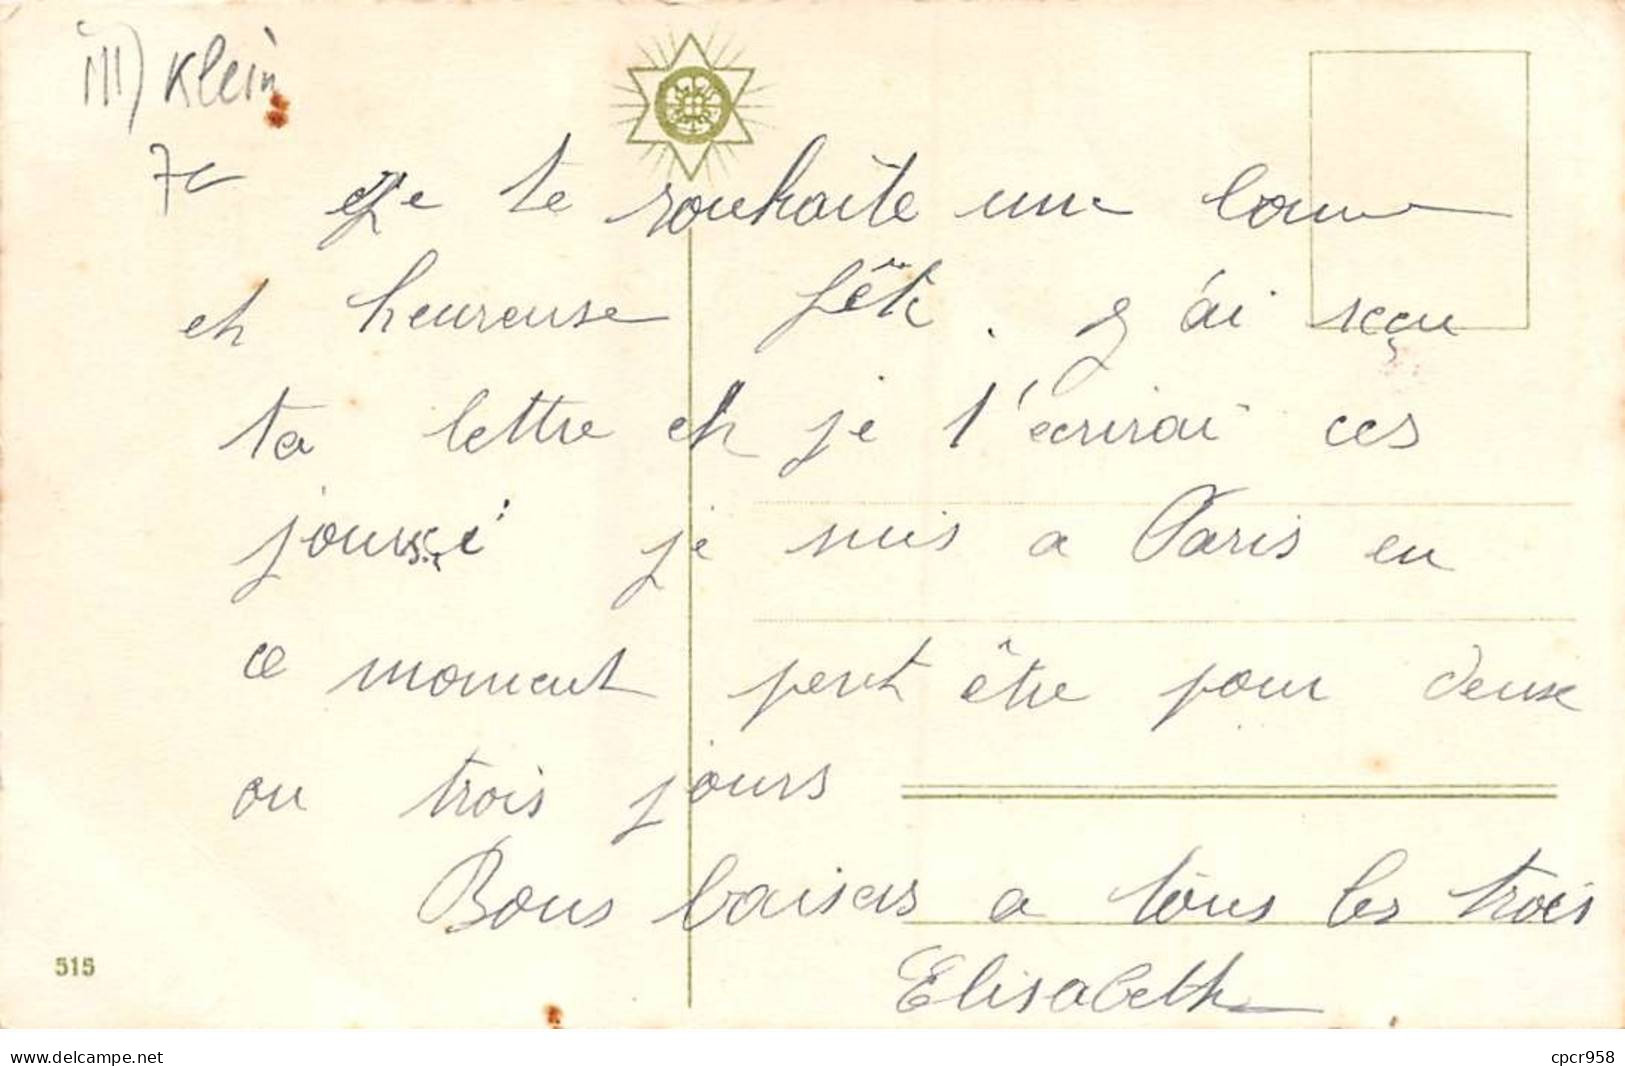 ill) Klein
7c
Je te souhaite une bonne
et heureuse fête. J'ai reçu
ta lettre et je t'écrirai ces
jours ci je suis a Paris en
ce moment peut être pour deux
ou trois jours
Bons baisers a tous les trois
Elisabeth
515
www.delcampe.net
cpcr958